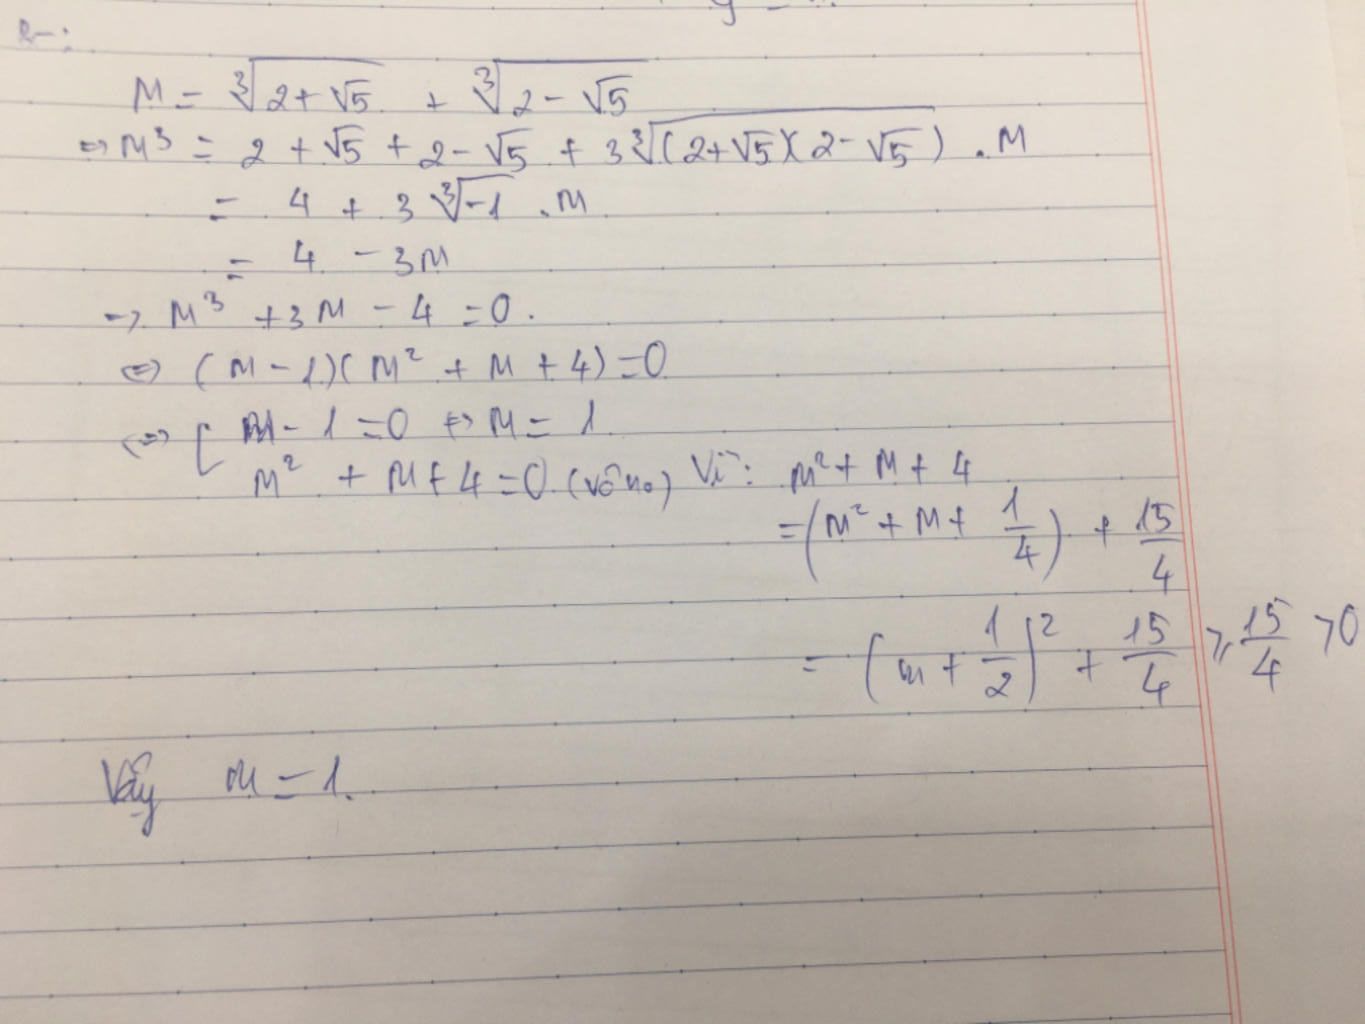 M = ∛(2+√5) + ∛(2-√5)
⇔ M³ = 2 + √5 + 2 - √5 + 3∛((2+√5)(2-√5)) . M
= 4 + 3∛(-1) . M
= 4 - 3M
→ M³ + 3M - 4 = 0.
⇔ (M - 1)(M² + M + 4) = 0
⇔ [ M - 1 = 0 ⇔ M = 1
M² + M + 4 = 0 (vô no) Vì: M² + M + 4
= (M² + M + 1/4) + 15/4
= (M + 1/2)² + 15/4 ⩾ 15/4 > 0
Vậy M = 1.